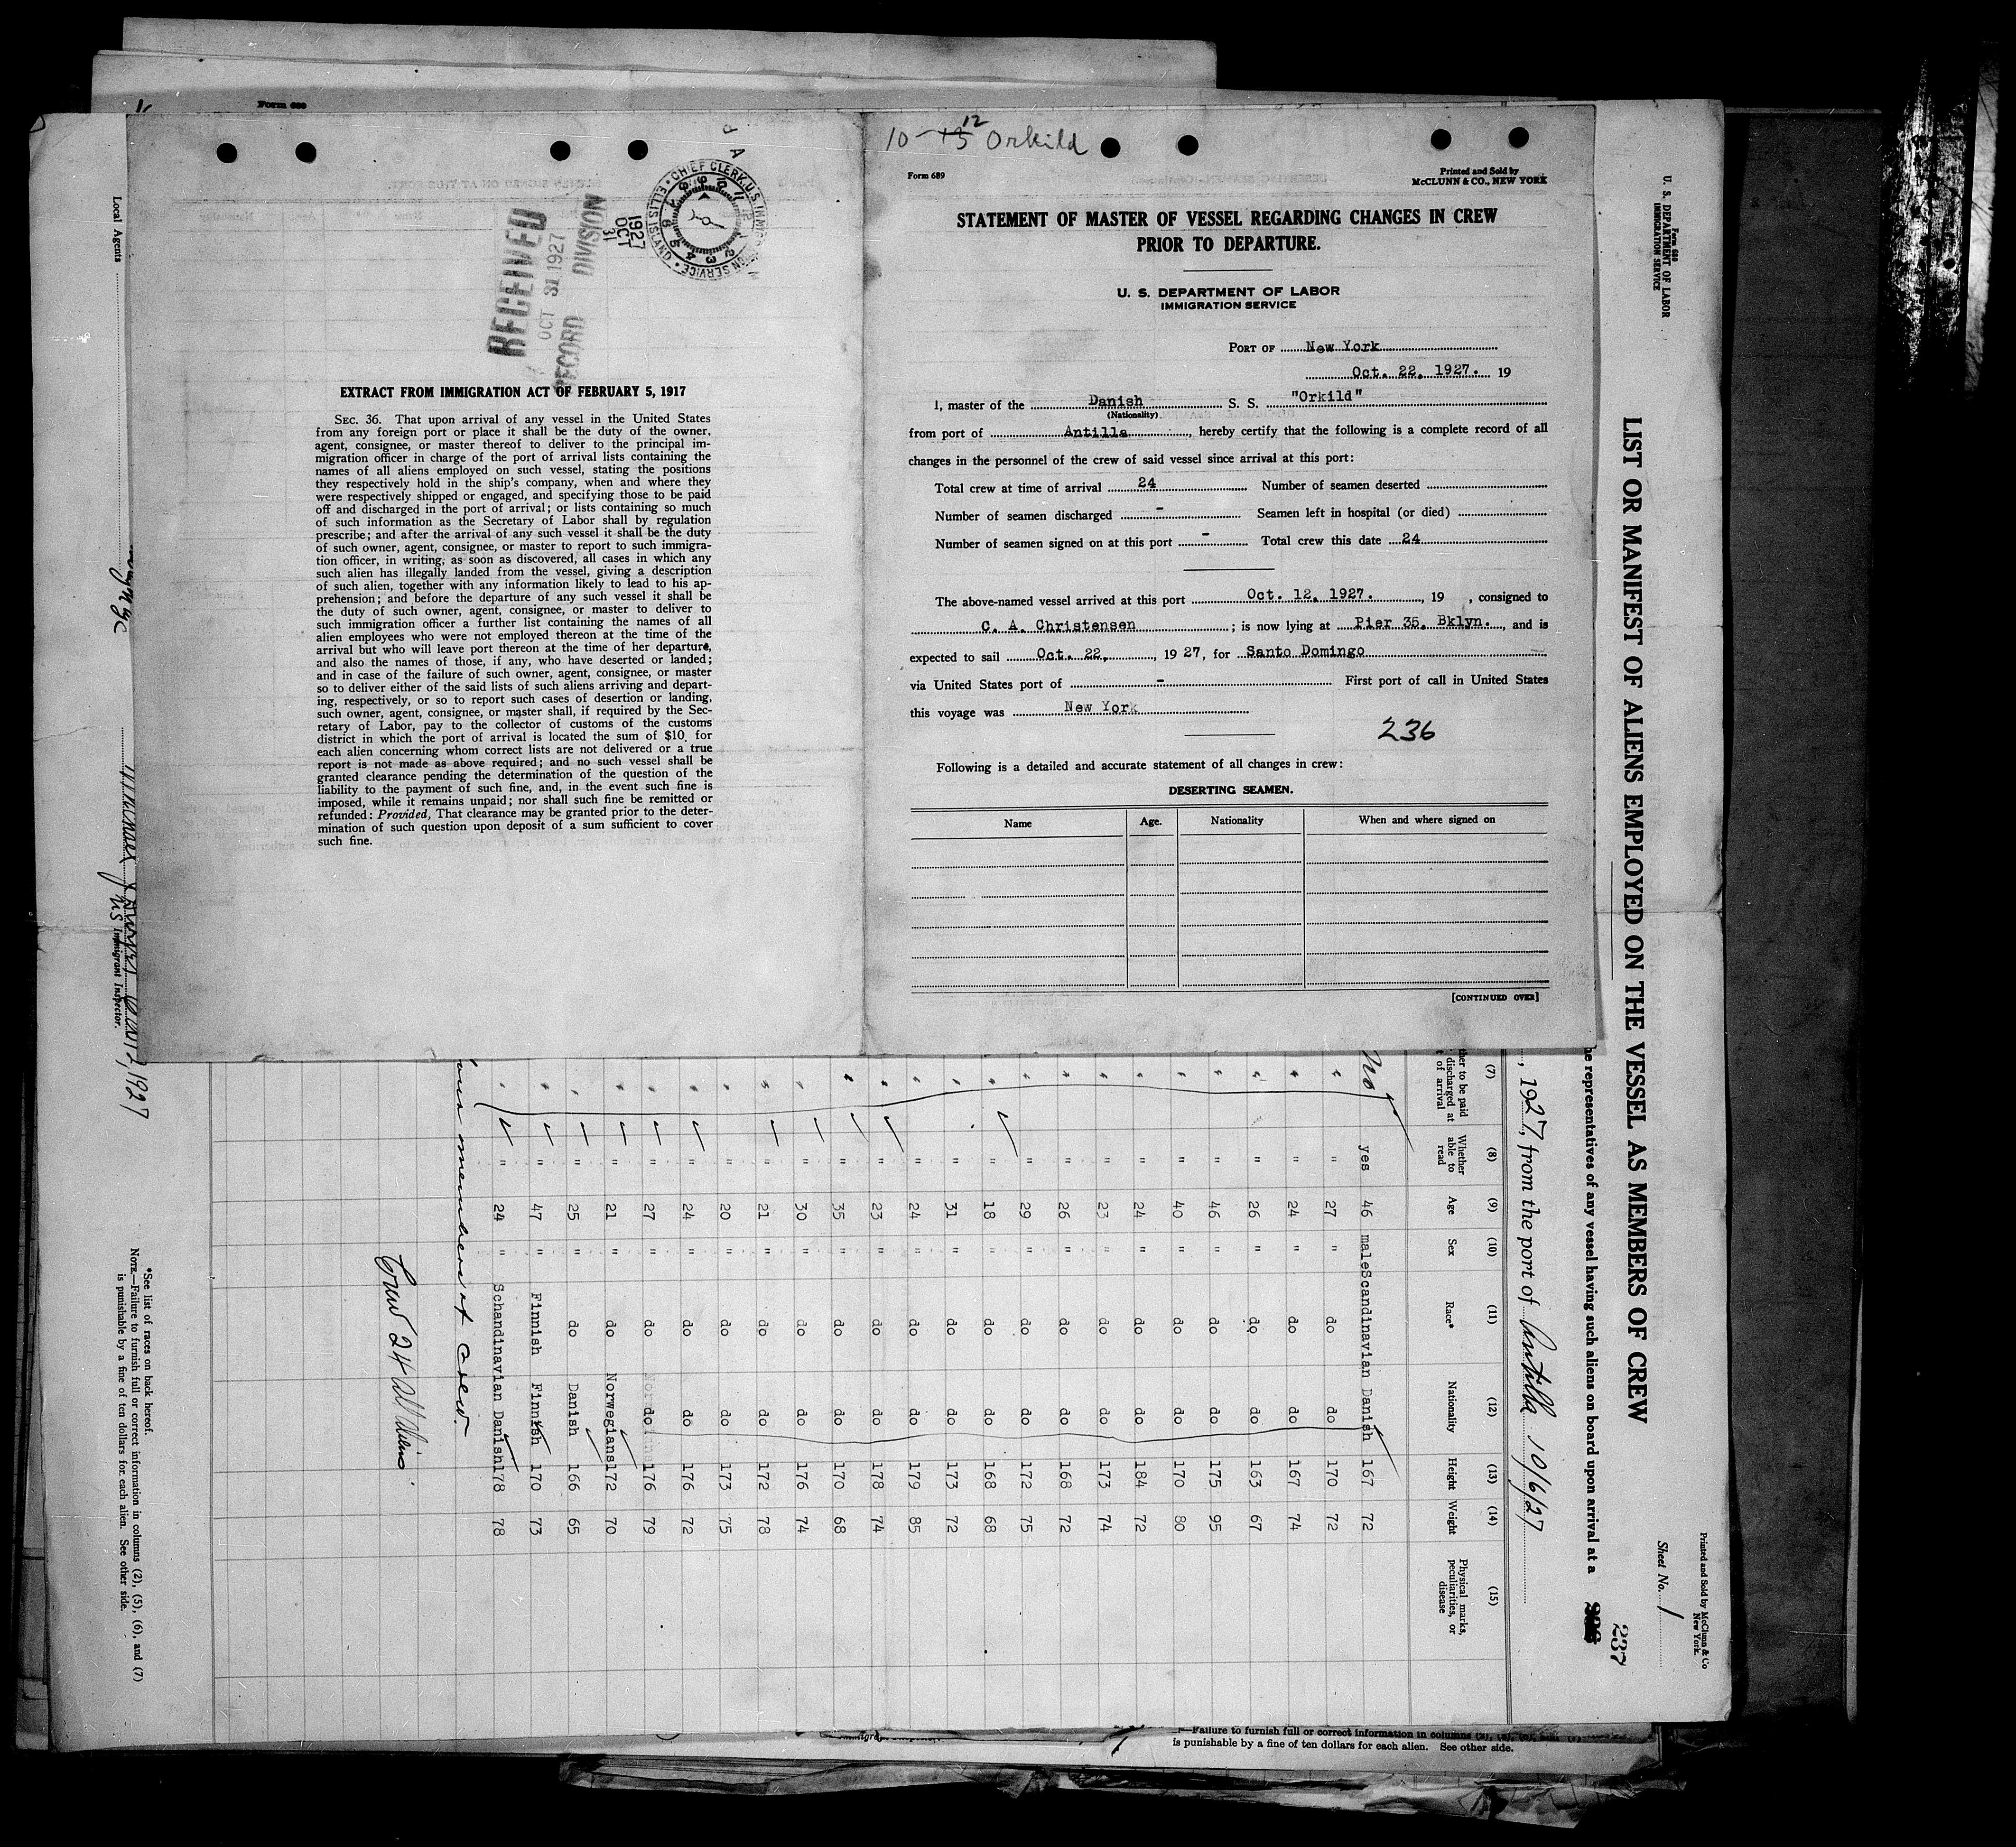 Form 689
10-12 Orkild
Form 689
Printed and Sold by
McCLUNN & CO., NEW YORK
STATEMENT OF MASTER OF VESSEL REGARDING CHANGES IN CREW
PRIOR TO DEPARTURE.
U. S. DEPARTMENT OF LABOR
IMMIGRATION SERVICE
PORT OF New York
Oct. 22, 1927. 19
I, master of the Danish S. S. "Orkild"
(Nationality)
from port of Antilla, hereby certify that the following is a complete record of all
changes in the personnel of the crew of said vessel since arrival at this port:
Total crew at time of arrival 24 Number of seamen deserted
Number of seamen discharged - Seamen left in hospital (or died)
Number of seamen signed on at this port - Total crew this date 24
The above-named vessel arrived at this port Oct. 12, 1927., 19 , consigned to
C. A. Christensen ; is now lying at Pier 35, Bklyn., and is
expected to sail Oct. 22, , 19 27, for Santo Domingo
via United States port of - First port of call in United States
this voyage was New York
236
Following is a detailed and accurate statement of all changes in crew:
DESERTING SEAMEN.
Name Age. Nationality When and where signed on
[CONTINUED OVER]
CHIEF CLERK, U.S. IMMIGRATION SERVICE
ELLIS ISLAND
1927
OCT
31
RECEIVED
OCT 31 1927
RECORD DIVISION
EXTRACT FROM IMMIGRATION ACT OF FEBRUARY 5, 1917
SEC. 36. That upon arrival of any vessel in the United States
from any foreign port or place it shall be the duty of the owner,
agent, consignee, or master thereof to deliver to the principal im-
migration officer in charge of the port of arrival lists containing the
names of all aliens employed on such vessel, stating the positions
they respectively hold in the ship's company, when and where they
were respectively shipped or engaged, and specifying those to be paid
off and discharged in the port of arrival; or lists containing so much
of such information as the Secretary of Labor shall by regulation
prescribe; and after the arrival of any such vessel it shall be the duty
of such owner, agent, consignee, or master to report to such immigra-
tion officer, in writing, as soon as discovered, all cases in which any
such alien has illegally landed from the vessel, giving a description
of such alien, together with any information likely to lead to his ap-
prehension; and before the departure of any such vessel it shall be
the duty of such owner, agent, consignee, or master to deliver to
such immigration officer a further list containing the names of all
alien employees who were not employed thereon at the time of the
arrival but who will leave port thereon at the time of her departure,
and also the names of those, if any, who have deserted or landed;
and in case of the failure of such owner, agent, consignee, or master
so to deliver either of the said lists of such aliens arriving and depart-
ing, respectively, or so to report such cases of desertion or landing,
such owner, agent, consignee, or master shall, if required by the Sec-
retary of Labor, pay to the collector of customs of the customs
district in which the port of arrival is located the sum of $10 for
each alien concerning whom correct lists are not delivered or a true
report is not made as above required; and no such vessel shall be
granted clearance pending the determination of the question of the
liability to the payment of such fine, and, in the event such fine is
imposed, while it remains unpaid; nor shall such fine be remitted or
refunded: Provided, That clearance may be granted prior to the deter-
mination of such question upon deposit of a sum sufficient to cover
such fine.
Form 680
U. S. DEPARTMENT OF LABOR
IMMIGRATION SERVICE
Printed and Sold by McClunn & Co
New York.
Sheet No. 1
LIST OR MANIFEST OF ALIENS EMPLOYED ON THE VESSEL AS MEMBERS OF CREW
237
he representatives of any vessel having such aliens on board upon arrival at a
, 1927, from the port of Antilla 10/6/27
(7) (8) (9) (10) (11) (12) (13) (14) (15)
ther to be paid discharged at of arrival Whether able to read Age Sex Race* Nationality Height Weight Physical marks, peculiarities, or disease
No yes 46 male Scandinavian Danish 167 72
" " 27 " do do 170 72
" " 24 " do do 167 74
" " 26 " do do 163 67
" " 46 " do do 175 95
" " 40 " do do 170 80
" " 24 " do do 184 72
" " 23 " do do 173 74
" " 26 " do do 168 72
" " 29 " do do 172 75
" " 18 " do do 168 68
" " 31 " do do 173 72
" " 24 " do do 179 85
" " 23 " do do 178 74
" " 35 " do do 170 68
" " 30 " do do 176 74
" " 21 " do do 172 78
" " 20 " do do 173 75
" " 24 " do do 176 72
" " 27 " do do 176 79
" " 21 " do Norwegians 172 70
" " 25 " do Danish 166 65
" " 47 " Finnish Finnish 170 73
" " 24 " Schandinavian Danish 178 78
members of crew.
Crew 24 all aliens
Local Agents
US Immigrant Inspector.
1927
*See list of races on back hereof.
NOTE.—Failure to furnish full or correct information in columns (2), (5), (6), and (7)
is punishable by a fine of ten dollars for each alien. See other side.
Failure to furnish full or correct information in columns
is punishable by a fine of ten dollars for each alien. See other side.